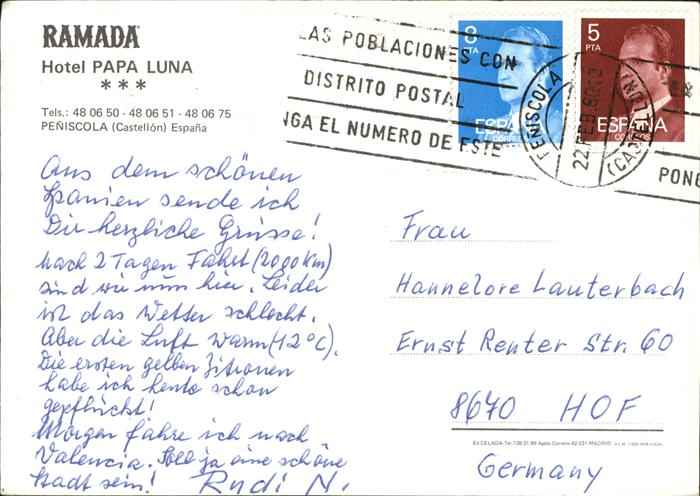 RAMADA
Hotel PAPA LUNA
***
Tels.: 48 06 50 - 48 06 51 - 48 06 75
PEÑISCOLA (Castellón) España
LAS POBLACIONES CON
DISTRITO POSTAL
NGA EL NUMERO DE ESTE
8
PTA
ESPAÑA
CORREOS
5
PTA
ESPAÑA
CORREOS
PEÑISCOLA
22 FEB. 80.12
(CASTELLON)
PONG
Aus dem schönen
Spanien sende ich
Dir herzliche Grüsse!
Nach 2 Tagen Fahrt (2000 Km)
sind wir nun hier. Leider
ist das Wetter schlecht.
Aber die Luft warm (12°C).
Die ersten gelben Zitronen
habe ich heute schon
gepflückt!
Morgen fahre ich nach
Valencia. Soll ja eine schöne
Stadt sein! Rudi N.
Frau
Hannelore Lauterbach
Ernst Reuter Str. 60
8670 HOF
Germany